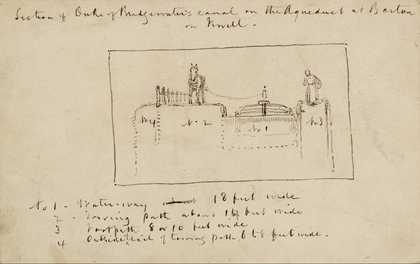 Section of Duke of Bridgewater's canal on the Aqueduct at Barton
on Irwell.
No 4
No 2
No 1
No 3
No 1 - Waterway 18 feet wide
2 - Towing path about 14 feet wide
3 Footpath 8 or 10 feet wide
4 Outside of towing path 6 to 8 feet wide.